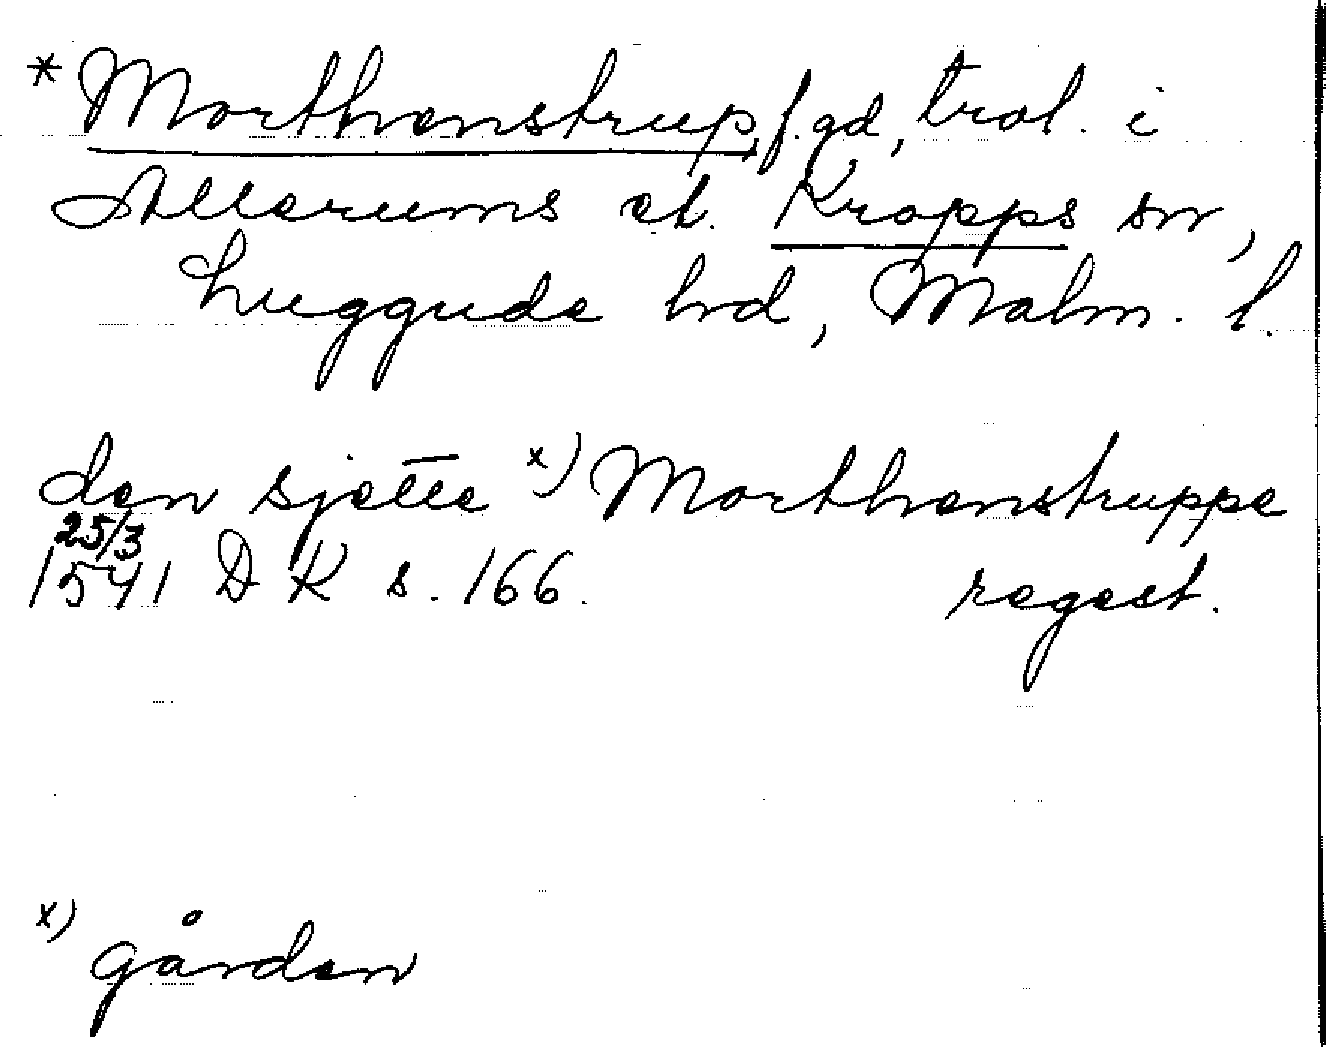 * Morthenstrup, f. gd, trol. i
Allerums el. Kropps sn,
Luggude hd, Malm. l.
den sjette x) Morthenstruppe
25/3
1541 D K s. 166. regest.
x) gården